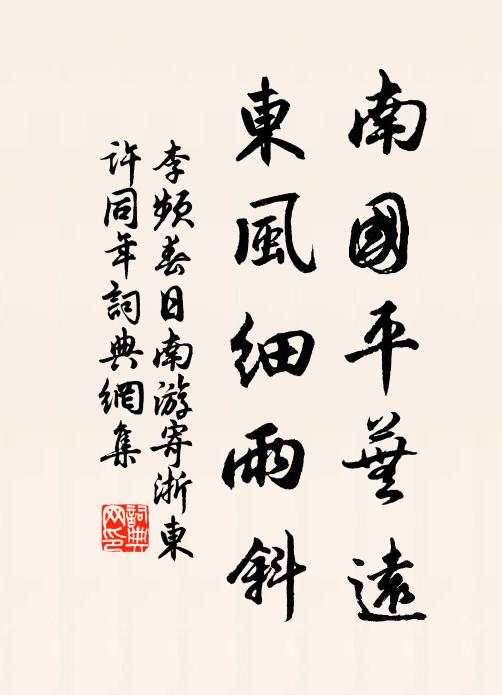 南國平蕪遠
東風細雨斜
李頻春日南游寄浙東
許同年詞典網集
詞典
网印